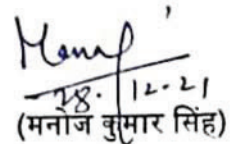 28.12.21
(मनोज कुमार सिंह)